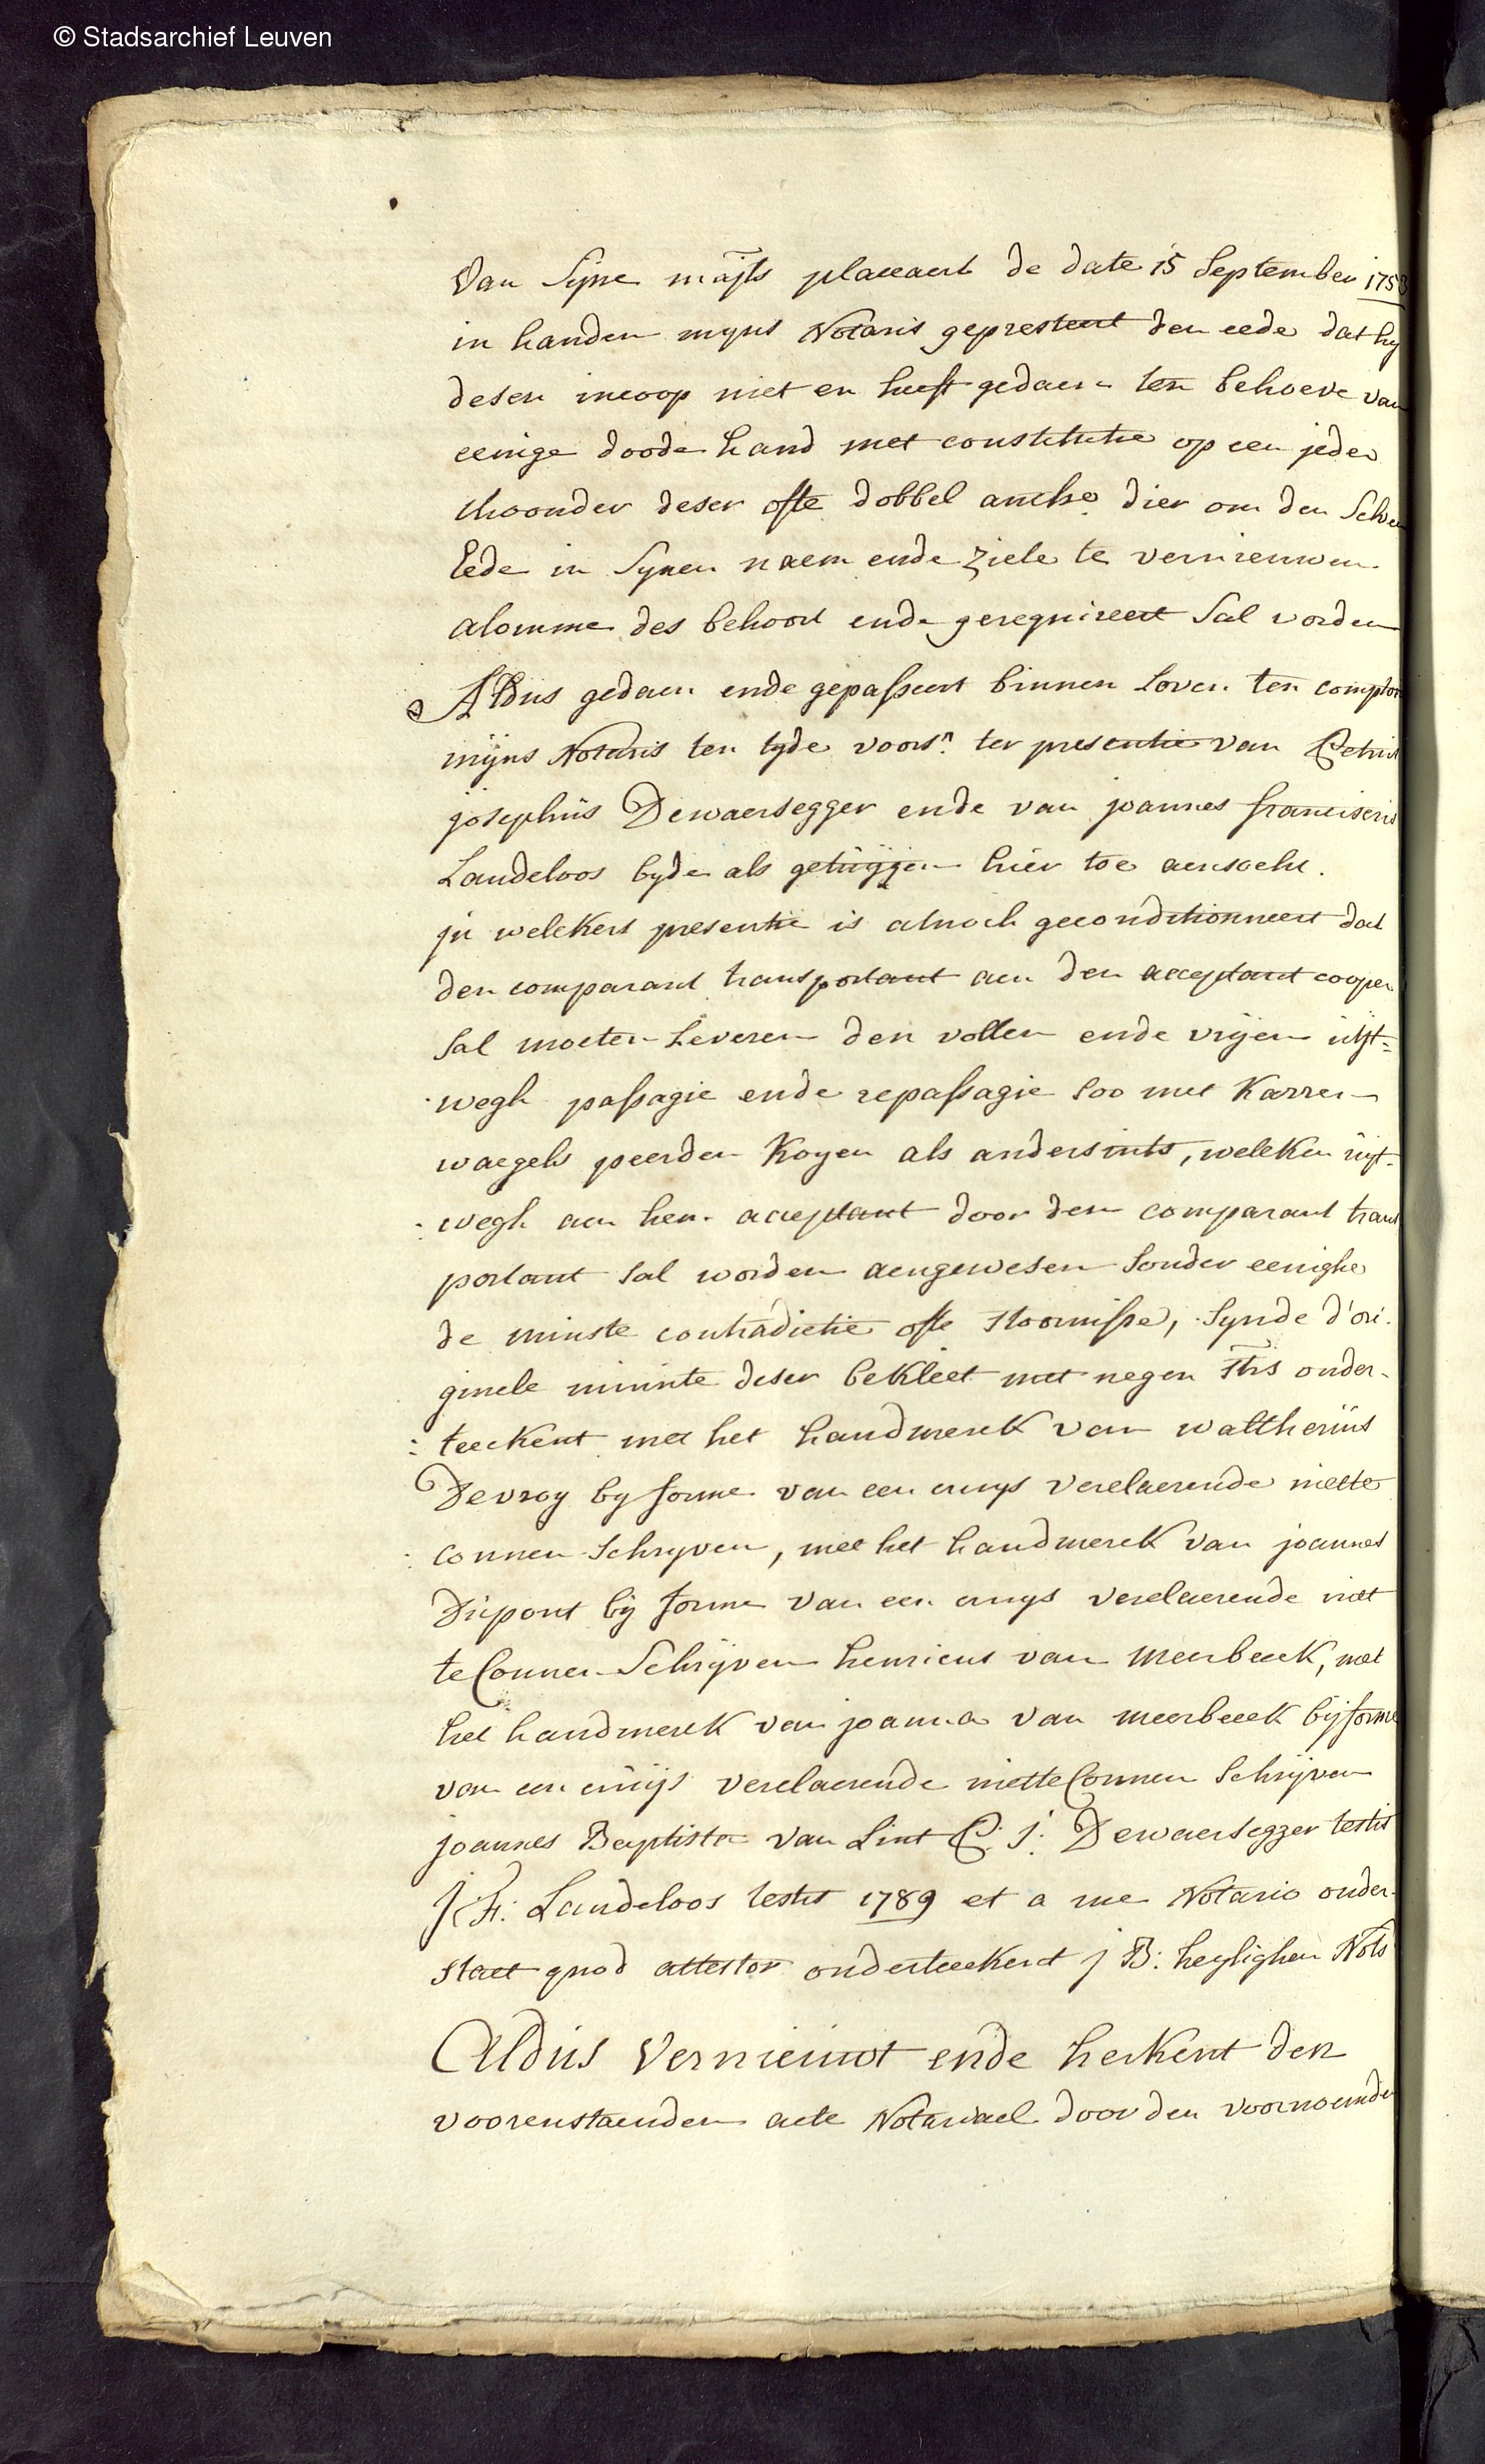 © Stadsarchief Leuven
Van Syne maj̃ts placcaert de date 15 September 1753
in handen myns Notaris gepresteert den eede dat hy
desen incoop niet en heeft gedaen ten behoeve van
eenige doode hand met constitutie op een jeder
thoonder deser ofte dobbel auth.e dier om den Selven
Eede in Synen naem ende ziele te vernieuwen
alomme des behoort ende gerequireert Sal worden
Aldus gedaen ende gepasseert binnen Loven ten comptoir
mijns Notaris ten tyde voors.n ter presentie van Petrus
josephus Dewaersegger ende van joannes franciscus
Landeloos byde als getuijgen hier toe aensocht.
jn welckers presentie is alnoch geconditionneert dat
den comparant transportant aen den acceptant cooper
Sal moeten Leveren den vollen ende vrijen uijt=
wegh passagie ende repassagie soo met Karren
waegels peerden Koyen als andersints, welcken uijt-
:wegh aen hem acceptant door den comparant trans
portant Sal worden aengewesen Sonder eenighe
de minste contradictie ofte stoornisse, Synde d'ori.
ginele minute deser bekleet met negen st̃rs onder-
:teeckent met het handmerck van waltherus
Devroy by forme van een cruys verclaerende niette
:connen Schryven, met het handmerck van joannes
Dupont bij forme van een cruys verclaerende niet
te Connen Schrijven henricus van meerbeeck, met
het handmerck van joanna van meerbeeck bij forme
van een cruijs verclaerende niette Connen Schrijven
joannes Baptista van Lint P: j: Dewaersegger testis
J: F: Landeloos testis 1789 et a me Notario onder-
staet quod attestor onderteekent j B: heylighen Nots
Aldus Vernieuwt ende herkent den
voorenstaenden acte Notariael door den voornoemden